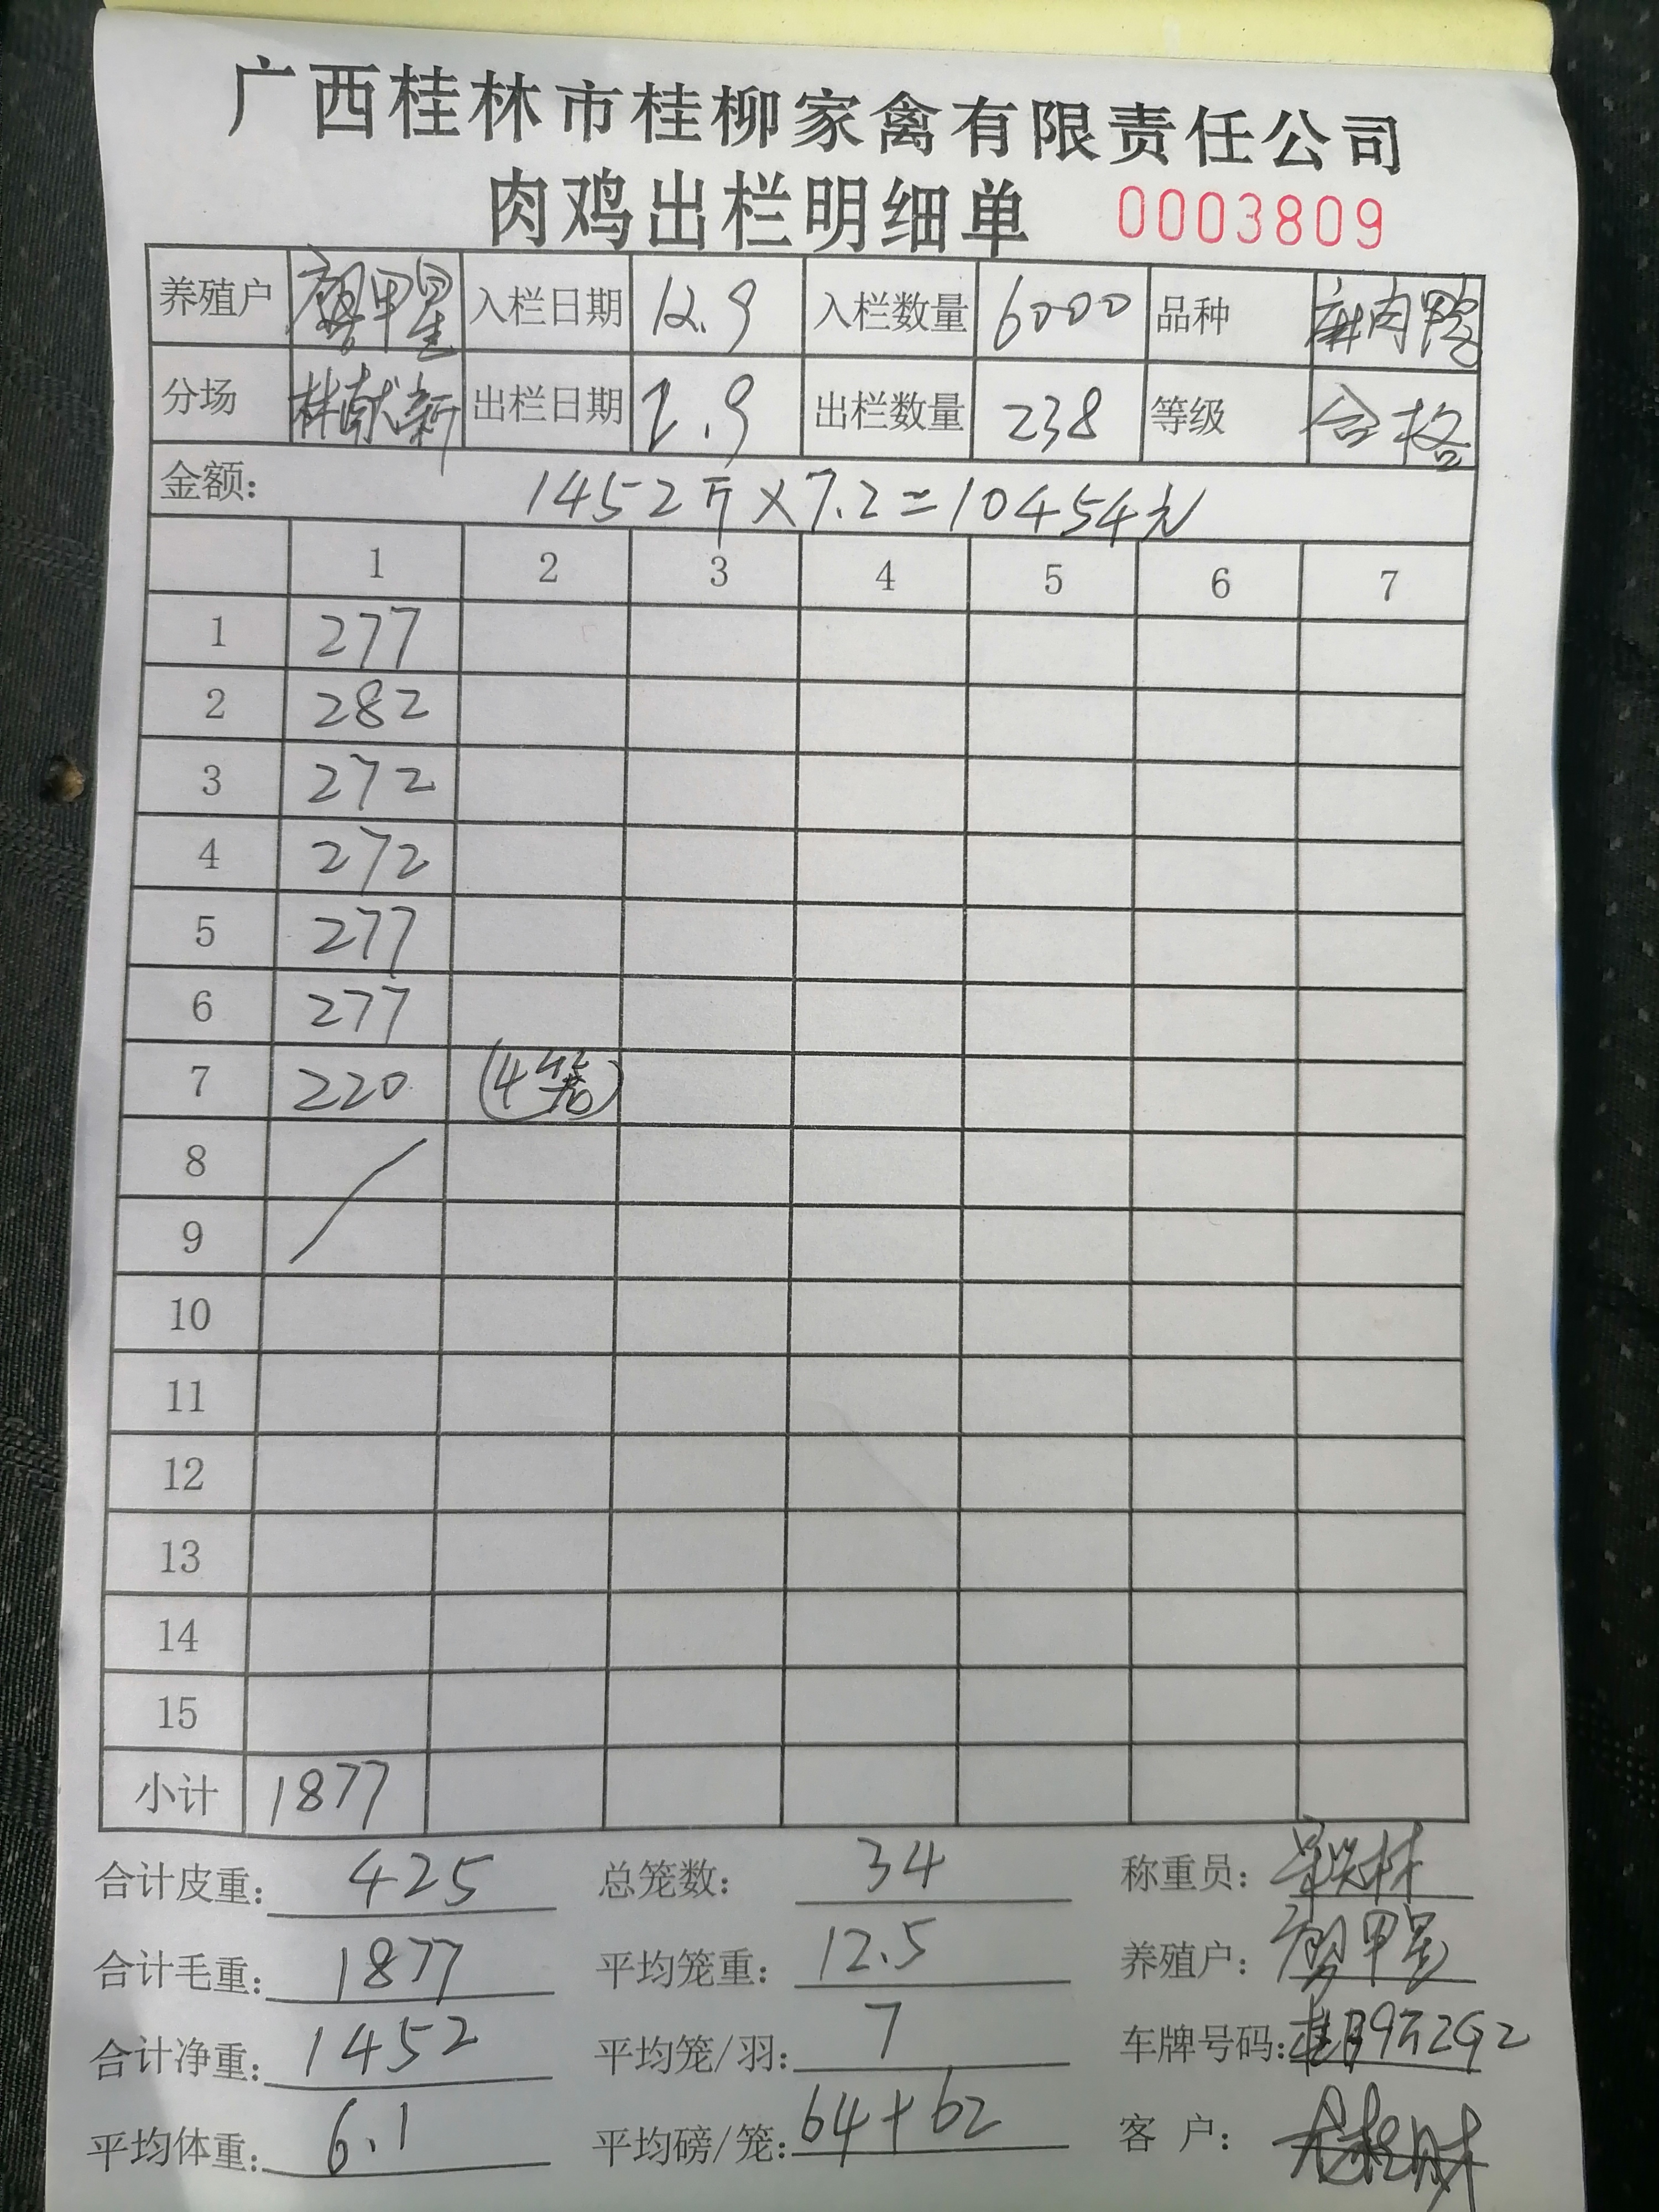 广西桂林市桂柳家禽有限责任公司
肉鸡出栏明细单 0003809
养殖户 廖甲星 入栏日期 12.9 入栏数量 6000 品种 麻肉鸡
分场 林献新 出栏日期 2.9 出栏数量 238 等级 合格
金额: 1452斤×7.2=10454元
1 2 3 4 5 6 7
1 277
2 282
3 272
4 272
5 277
6 277
7 220 (4笼)
8
9
10
11
12
13
14
15
小计 1877
合计皮重: 425 总笼数: 34 称重员:
合计毛重: 1877 平均笼重: 12.5 养殖户: 廖甲星
合计净重: 1452 平均笼/羽: 7 车牌号码:
平均体重: 6.1 平均磅/笼: 64+62 客 户: